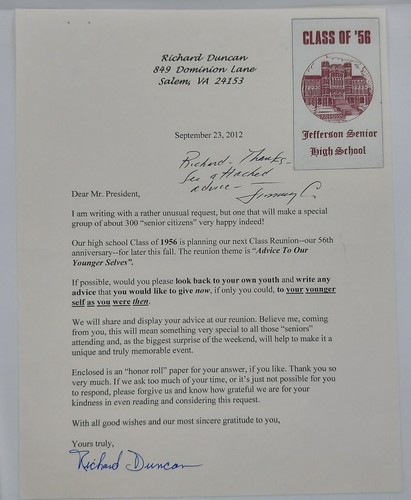 Richard Duncan
849 Dominion Lane
Salem, VA 24153
CLASS OF '56
Jefferson Senior
High School
September 23, 2012
Richard - Thanks -
See attached
advice -
Jimmy C.
Dear Mr. President,
I am writing with a rather unusual request, but one that will make a special
group of about 300 “senior citizens” very happy indeed!
Our high school Class of 1956 is planning our next Class Reunion--our 56th
anniversary--for later this fall. The reunion theme is “Advice To Our
Younger Selves”.
If possible, would you please look back to your own youth and write any
advice that you would like to give now, if only you could, to your younger
self as you were then.
We will share and display your advice at our reunion. Believe me, coming
from you, this will mean something very special to all those “seniors”
attending and, as the biggest surprise of the weekend, will help to make it a
unique and truly memorable event.
Enclosed is an “honor roll” paper for your answer, if you like. Thank you so
very much. If we ask too much of your time, or it's just not possible for you
to respond, please forgive us and know how grateful we are for your
kindness in even reading and considering this request.
With all good wishes and our most sincere gratitude to you,
Yours truly,
Richard Duncan